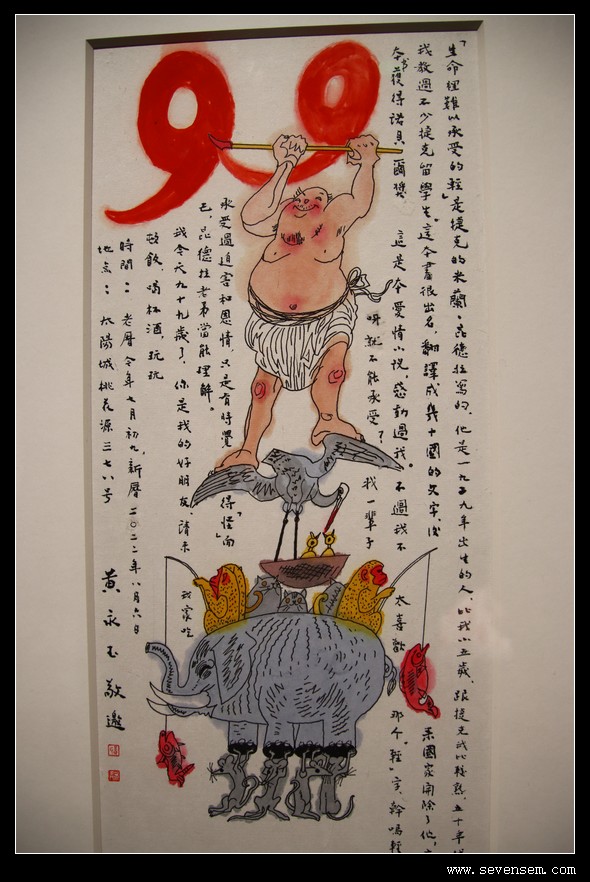 99
「生命裡難以承受的輕」是捷克的米蘭·昆德拉寫的，他是一九二九年出生的人，比我小五歲，跟捷克我比較熟，五十年代
我教過不少捷克留學生。這本書很出名，翻譯成幾十國的文字，後來國家開除了他，
本書獲得諾貝爾獎 這是本愛情小說，感動過我。不過我不太喜歡那个“輕”字，幹嗎輕
呀就不能承受？我一輩子
承受過迫害和恩情，只是有時覺「得怪」而
已，昆德拉老弟當能理解。
我今天九十九歲了，你是我的好朋友，請来我家吃
頓飯，喝杯酒，玩玩
時間：老曆今年七月初九，新曆二〇二二年八月六日
地点：太陽城桃花源三七八号
黄永玉敬邀
www.sevensem.com